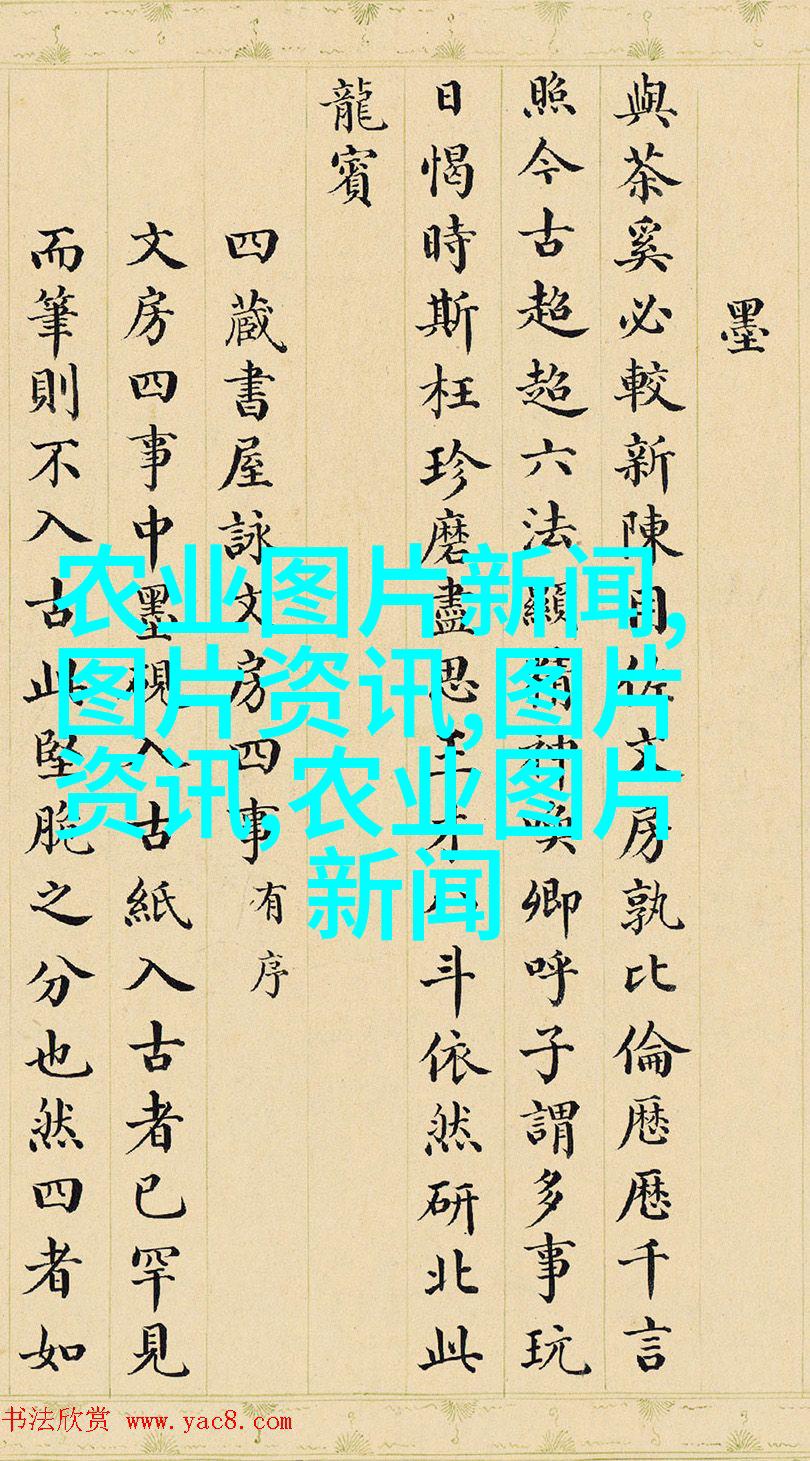 墨
與茶奚必較新陳用佐文房孰比倫厯厯千言
照今古超超六法顯精神喚卿呼子謂多事玩
日愒時斯枉珍磨盡思王才八斗依然研北此
龍賓
四蔵書屋詠文房四事有序
文房四事中墨硯入古紙入古者已罕見
而筆則不入古此堅脆之分也然四者如
农业图片新闻,
图片资讯,图片
资讯,农业图片
新闻
书法欣赏 www.yac8.com